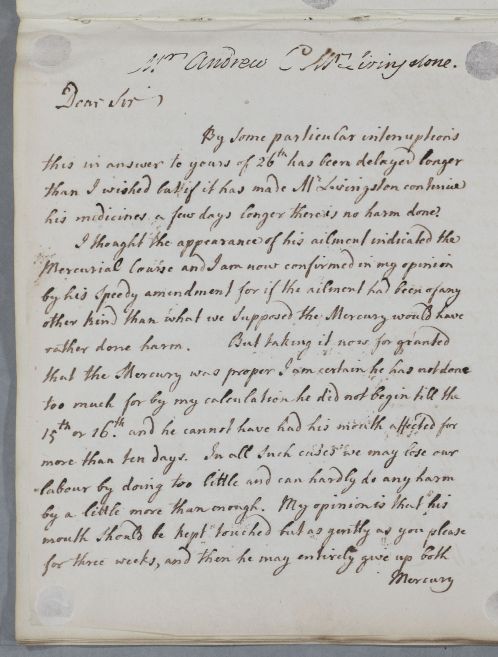 Mr Andrew C Mr Livingstone.
Dear Sir
By some particular interruptions
this in answer to yours of 26th has been delayed longer
than I wished but if it has made Mr Livingston continue
his medicines a few days longer there is no harm done.
I thought the appearance of his ailment indicated the
Mercurial Course and I am now confirmed in my opinion
by his speedy amendment for if the ailment had been of any
other kind than what we supposed the Mercury would have
rather done harm. But taking it now for granted
that the Mercury was proper I am certain he has not done
too much for by my calculation he did not begin till the
15th or 16th. and he cannot have had his mouth affected for
more than ten days. In all such cases we may lose our
labour by doing too little and can hardly do any harm
by a little more than enough. My opinion is that his
mouth should be kept touched but as gently as you please
for three weeks, and then he may entirely give up both
Mercury